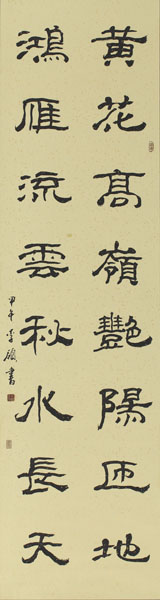 黃花高嶺豔陽匝地
鴻雁流雲秋水長天
甲午學敏書